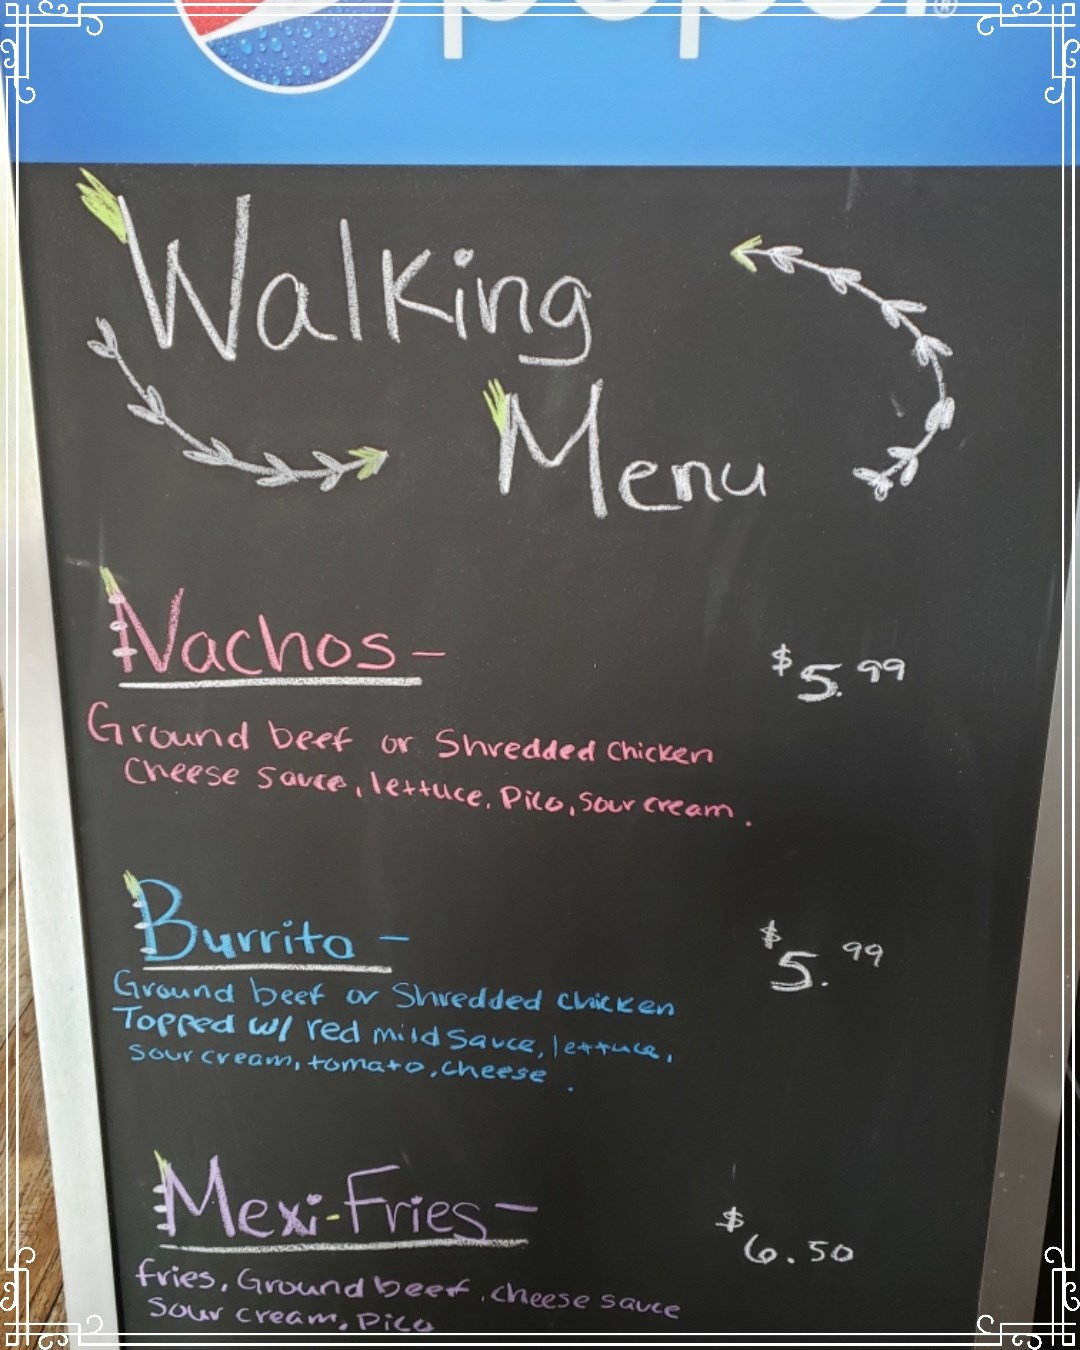 pepsi®
Walking
Menu
Nachos - $5.99
Ground beef or Shredded Chicken
Cheese sauce, lettuce, Pico, Sour cream.
Burrito - $5.99
Ground beef or Shredded chicken
Topped w/ red mild Sauce, lettuce,
sour cream, tomato, cheese.
Mexi-Fries - $6.50
fries, Ground beef, cheese sauce
Sour cream, Pico